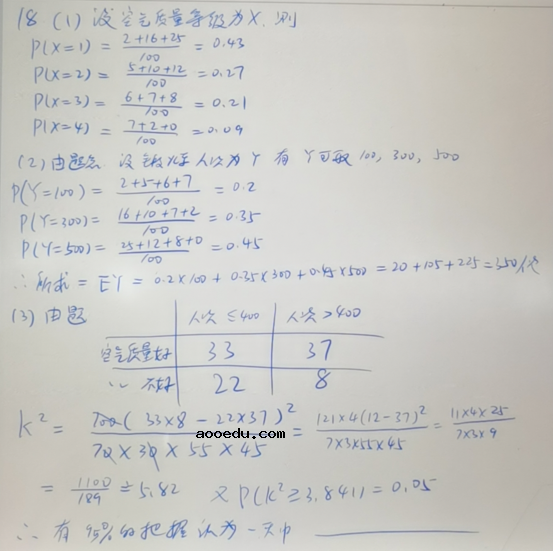 18 (1) 设空气质量等级为X, 则
P(X=1) = (2+16+25)/100 = 0.43
P(X=2) = (5+10+12)/100 = 0.27
P(X=3) = (6+7+8)/100 = 0.21
P(X=4) = (7+2+0)/100 = 0.09
(2) 由题意 设 人次为Y 有 Y可取 100, 300, 500
P(Y=100) = (2+5+6+7)/100 = 0.2
P(Y=300) = (16+10+7+2)/100 = 0.35
P(Y=500) = (25+12+8+0)/100 = 0.45
∴ 所求 = EY = 0.2×100 + 0.35×300 + 0.45×500 = 20+105+225 = 350
(3) 由题
人次≤400 人次>400
空气质量好 33 37
〃 不好 22 8
K² = 100(33×8-22×37)²/(70×30×55×45) = 121×4(12-37)²/(7×3×55×45) = 11×4×25/(7×3×9)
aooedu.com
= 1100/189 ≐ 5.82 又 P(K²≥3.841) = 0.05
∴ 有 95% 的把握认为一天中